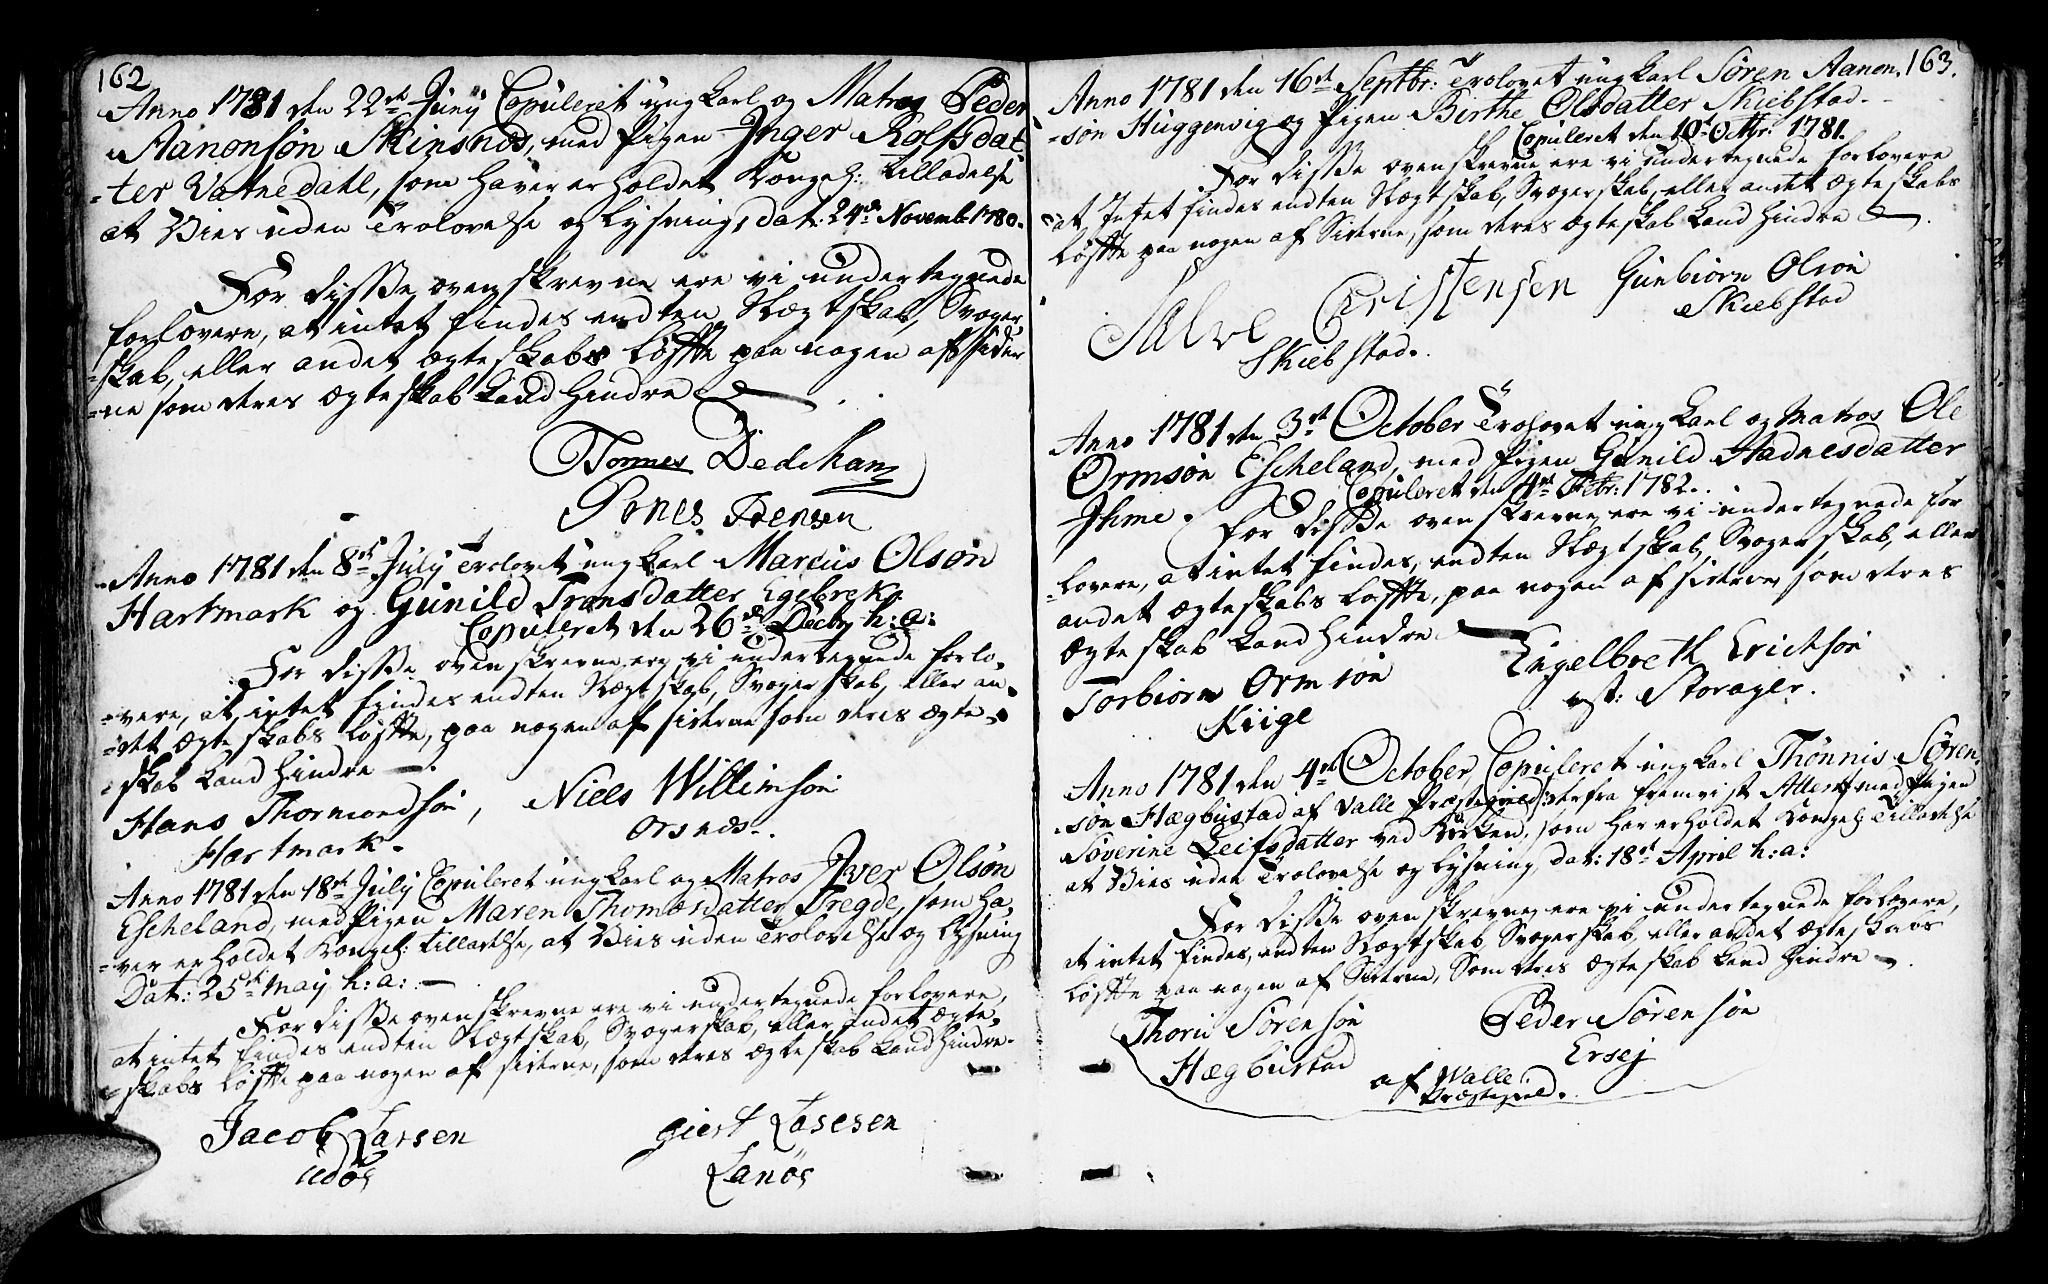 162
Anno 1781 den 22de Junij Copuleret ungkarl og Matros Peder
Aanonsøn Skinsnæs, med Pigen Inger Rolfsdat
-ter Vatnedahl, som haver erholdet Kongel: Tilladelse
at Vies uden Trolovelse og Lysning, dat: 24de Novemb: 1780.
For disse ovenskrevne ere vi undertegnede
forlovere, at intet findes endten Slægtskab, Svoger
-skab, eller andet ægteskabs Løffte paa nogen af Sider
-ne som deres Ægteskab kand hindre
Tønnes Dedekam
Jensen
Anno 1781 den 8de July Trolovet ungkarl Marcus Olsøn
Hartmark og Gunild Trondsdatter Egebrek.
Copuleret den 26de Decbr h: a:
For disse ovenskrevne ere vi undertegnede forlo-
-vere, at intet findes endten Slægtskab, Svogerskab, eller an-
-det ægteskabs Løffte, paa nogen af siderne som deres ægte-
-skab kand hindre
Hans Thormondsøn, Niels Willimsøn
Hartmark. Orsnæs.
Anno 1781 den 18de July Copuleret ungkarl og Matros Iver Olsøn
Escheland, med Pigen Maren Thomæsdatter Tregde, som ha-
-ver erholdet Kongel: tilladelse, at Vies uden Trolovelse og Lysning
Dat: 25de May h: a:
For disse ovenskrevne ere vi undertegnede forlovere,
at intet findes endten Slægtskab, Svogerskab, eller andet ægte-
-skabs Løffte paa nogen af siderne, som deres ægteskab kand hindre.
Jacob Larsen Giert Lasesen
udøe Lanøe
163.
Anno 1781 den 16de Septbr: Trolovet ungkarl Søren Aanon-
-søn Huggenvig og Pigen Birthe Olsdatter Skiebstad.
Copuleret den 10de Octbr: 1781.
For disse ovenskrevne ere vi undertegnede forlovere
at Intet findes endten Slægtskab, Svogerskab, eller andet ægteskabs
Løffte paa nogen af Siderne, som deres ægteskab kand hindre
Salve Cristensen Gunbiørn Olsøn
Skiebstad. Skiebstad
Anno 1781 den 3de October Trolovet ungkarl og Matros Ole
Ormsøn Escheland, med Pigen Gunild Stadnesdatter
Ihme. Copuleret den 4de Febr: 1782.
For disse ovenskrevne ere vi undertegnede for
-lovere, at intet findes, endten Slægtskab, Svogerskab, eller
andet ægteskabs Løffte, paa nogen af siderne, som deres
Ægteskab kand hindre
Torbiørn Ormsøn Engelbreth Erichsøn
Kiige Storager.
Anno 1781 den 4de October, Copuleret ungkarl Thønnis Søren-
-søn Hægbustad af Valle Præstegield, derfra fremvist Attest med Pigen
Søverine Leifsdatter ved Kirken, som har erholdet Kongel: Tilladelse
at Vies uden Trolovelse og Lysning, dat: 18de April h: a:
For disse ovenskrevne ere vi undertegnede forlovere,
at intet findes, endten Slægtskab, Svogerskab, eller andet ægteskabs
Løffte paa nogen af Siderne, Som deres Ægteskab kand hindre
Thoru Sørensøn Peder Sørensøn
Hægbustad Ersej
af Walle
Præstegield.